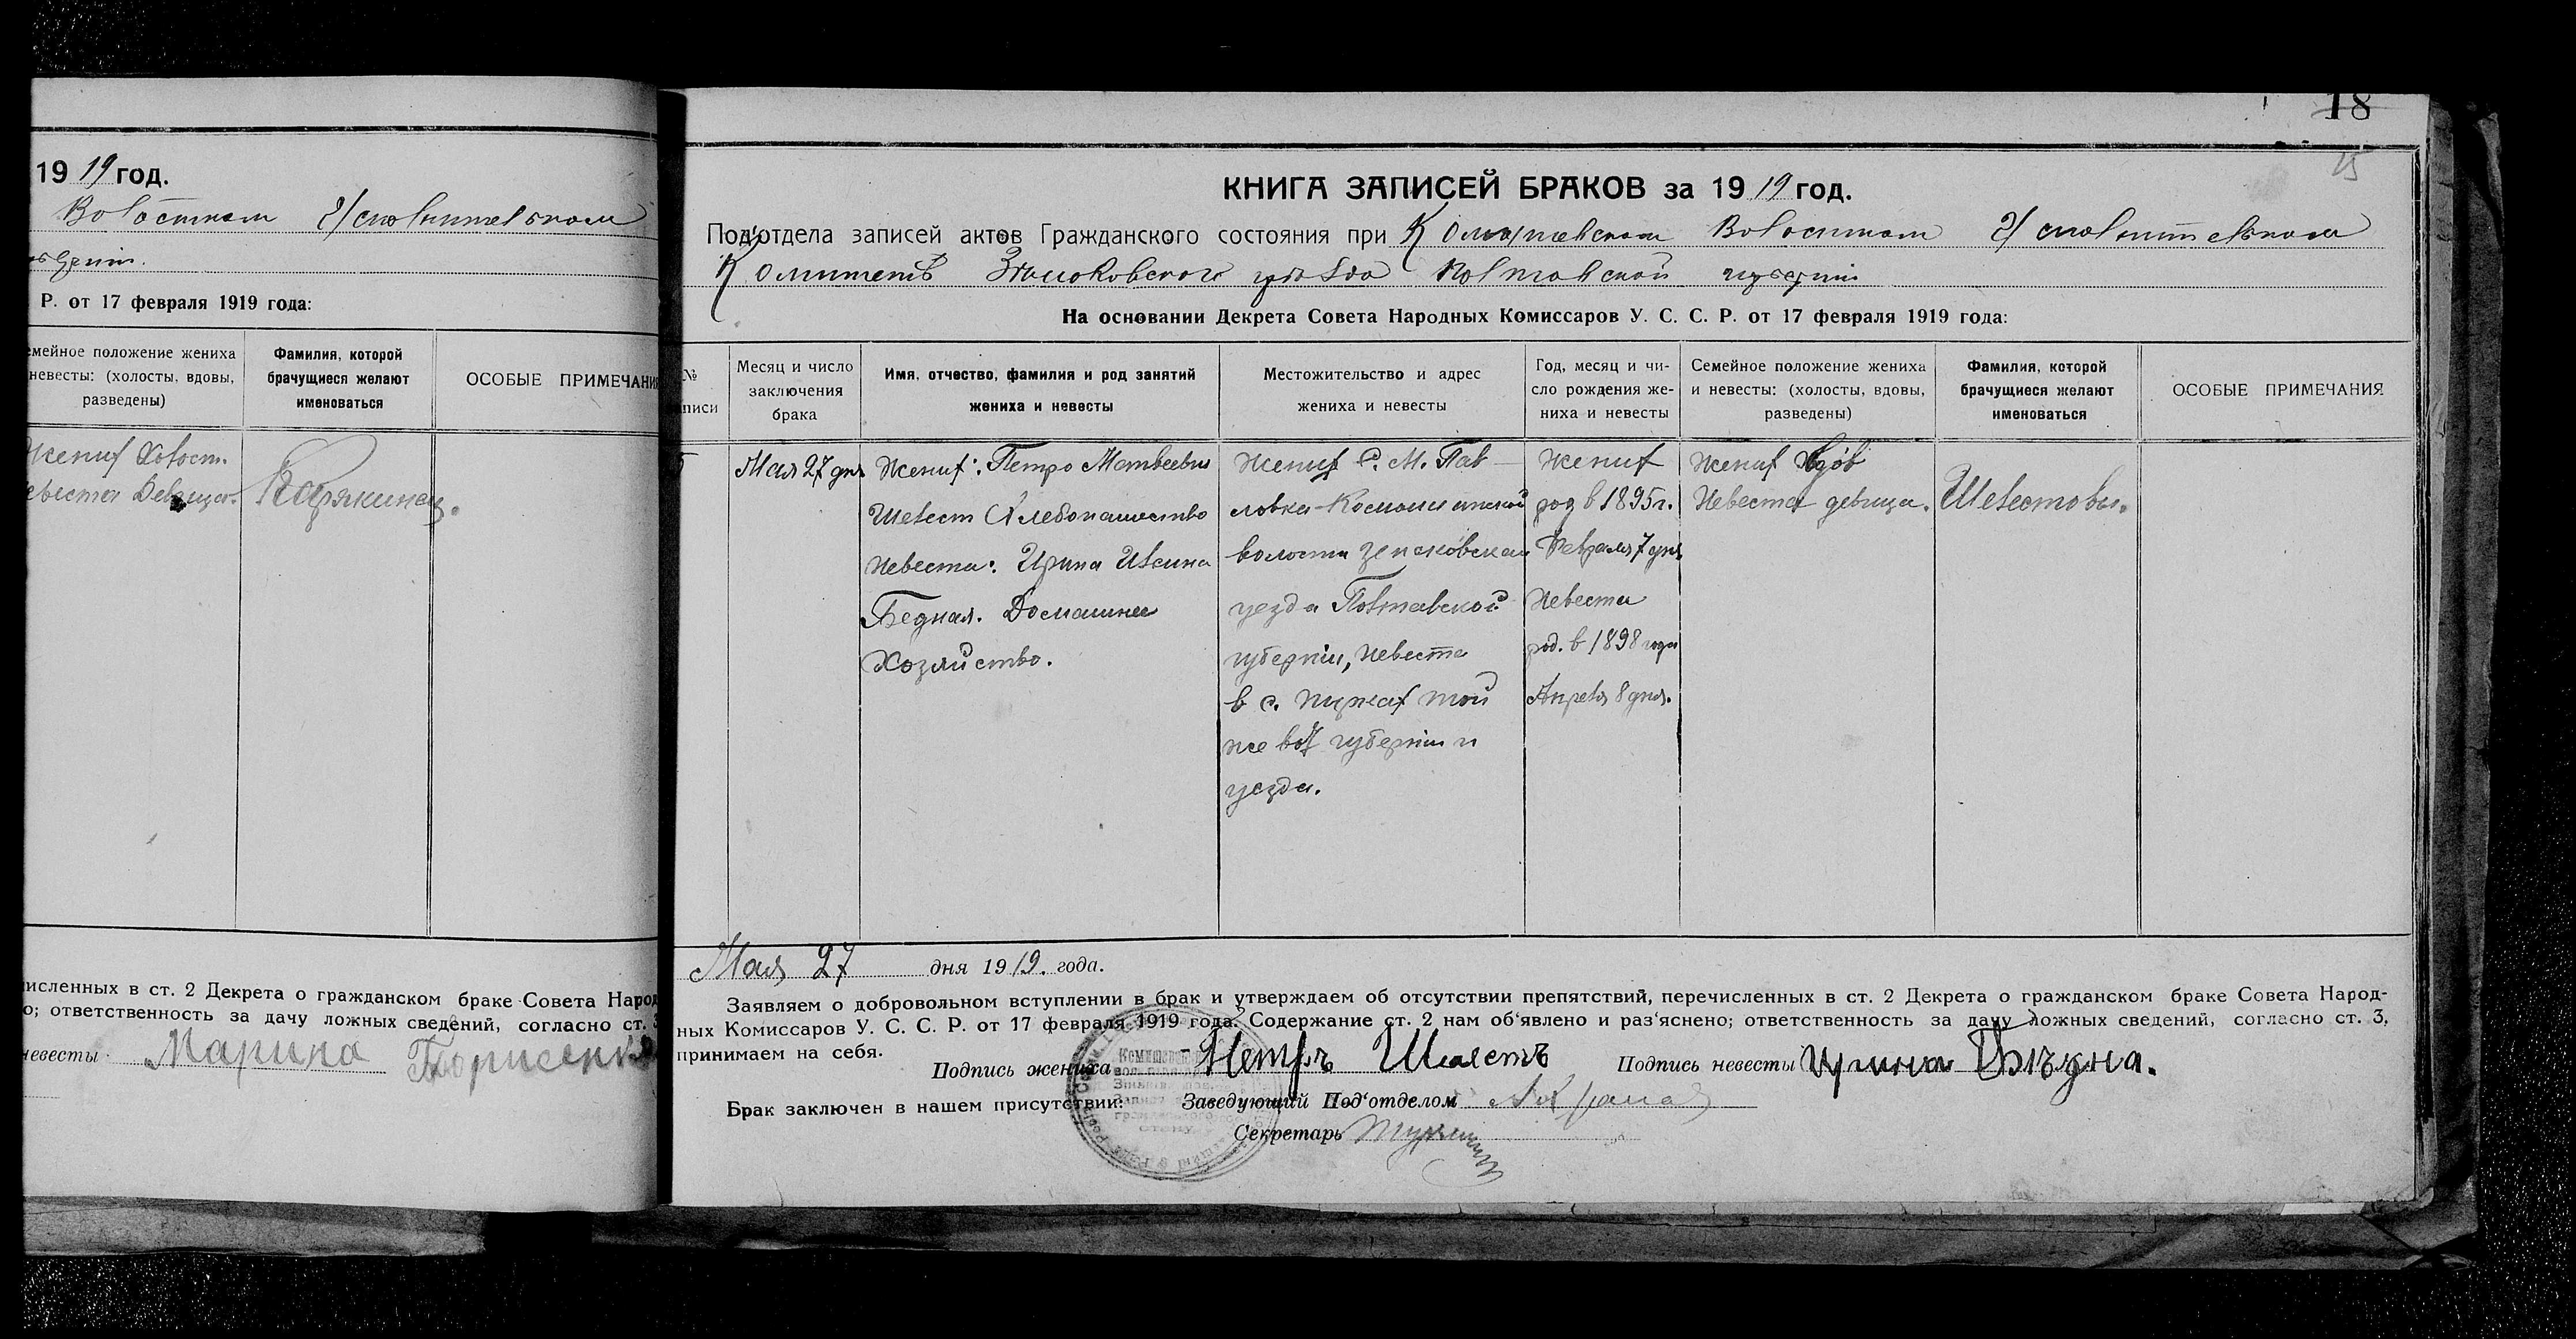 19 19 год.
Волостном Исполнительном
Р. от 17 февраля 1919 года:
емейное положение жениха
невесты: (холосты, вдовы,
разведены)
Фамилия, которой
брачущиеся желают
именоваться
ОСОБЫЕ ПРИМЕЧАНИ
Жених Холост.
евеста Девица.
исленных в ст. 2 Декрета о гражданском браке Совета Народ
о; ответственность за дачу ложных сведений, согласно ст. 3
невесты Марина Борисенко
18
15
КНИГА ЗАПИСЕЙ БРАКОВ за 19 19 год.
Под'отдела записей актов Гражданского состояния при Комышевском Волостном Исполнительном
Комитетѣ Зѣньковского уѣзда Полтавской губернии
На основании Декрета Совета Народных Комиссаров У. С. С. Р. от 17 февраля 1919 года:
№
аписи
Месяц и число
заключения
брака
Имя, отчество, фамилия и род занятий
жениха и невесты
Местожительство и адрес
жениха и невесты
Год, месяц и чи-
сло рождения же-
ниха и невесты
Семейное положение жениха
и невесты: (холосты, вдовы,
разведены)
Фамилия, которой
брачущиеся желают
именоваться
ОСОБЫЕ ПРИМЕЧАНИЯ
Мая 27 дня
Жених: Петро Матвеевич
Шелест Хлебопашество
Невеста: Ирина Ивсина
Бедная. Домашнее
Хозяйство.
Жених С. М. Пав-
ловка
волости Зеньковская
уезда Полтавской
губернии, невеста
в с. той
же вол губернии и
уезда.
Жених
род в 1895 г.
Февраля 7 дня
Невеста
род. в 1898 года
Апреля 8 дня.
Жених Вдов
Невеста девица.
Шелестовы.
Мая 27 дня 19 19. года.
Заявляем о добровольном вступлении в брак и утверждаем об отсутствии препятствий, перечисленных в ст. 2 Декрета о гражданском браке Совета Народ-
ных Комиссаров У. С. С. Р. от 17 февраля 1919 года. Содержание ст. 2 нам об'явлено и раз'яснено; ответственность за дачу ложных сведений, согласно ст. 3,
принимаем на себя.
Подпись жениха Петръ Шелестъ Подпись невесты Ирина Бѣдна.
Брак заключен в нашем присутствии: Заведующий Под'отделом
Секретарь